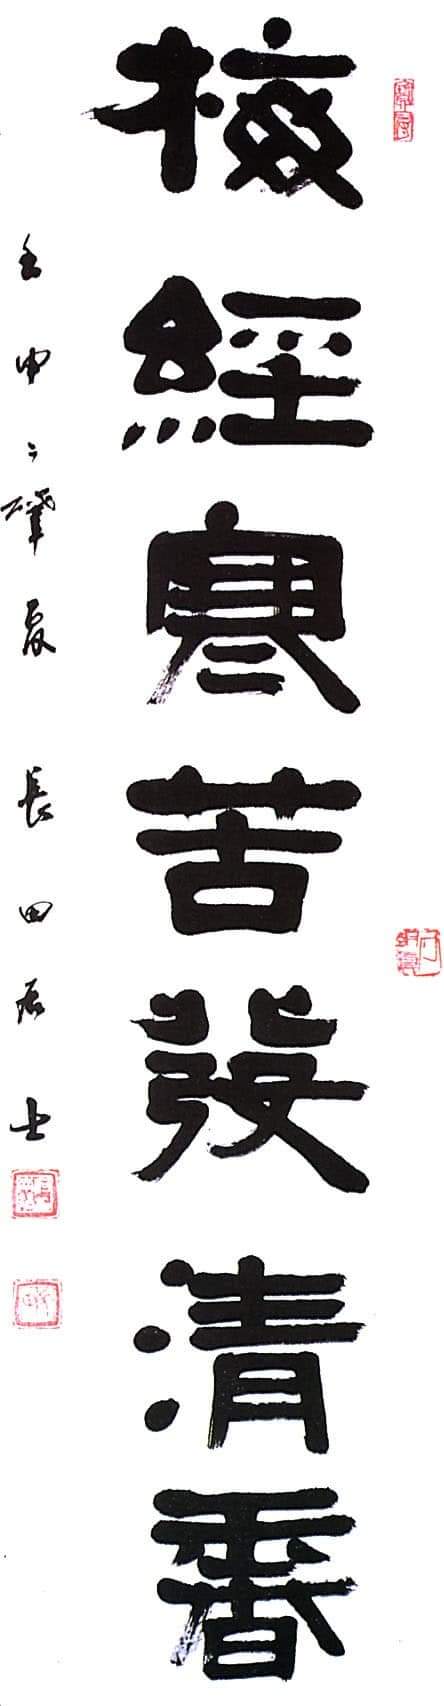 梅經寒苦發清香
壬申之肇夏 長田居士